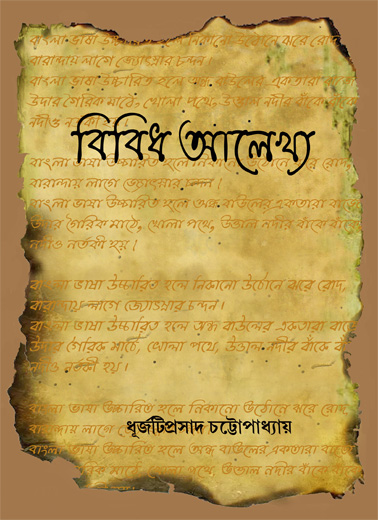 বাংলা ভাষা উচ্চারিত হলে নিকানো উঠোনে ঝরে রোদ,
বারান্দায় লাগে জ্যোৎস্নার চন্দন
বাংলা ভাষা উচ্চারিত হলে অন্ধ বাউলের একতারা বাজে
উদার গৈরিক মাঠে, খোলা পথে, উত্তাল নদীর বাঁকে বাঁকে
নদীও
বিবিধ আলেখ্য
বাংলা ভাষা উচ্চারিত হলে নিকানো উঠোনে ঝরে রোদ,
বারান্দায় লাগে জ্যোৎস্নার চন্দন।
বাংলা ভাষা উচ্চারিত হলে অন্ধ বাউলের একতারা বাজে
উদার গৈরিক মাঠে, খোলা পথে, উত্তাল নদীর বাঁকে বাঁকে
নদীও নর্তকী হয়।
বাংলা ভাষা উচ্চারিত হলে নিকানো উঠোনে ঝরে রোদ,
বারান্দায় লাগে জ্যোৎস্নার চন্দন।
বাংলা ভাষা উচ্চারিত হলে অন্ধ বাউলের একতারা বাজে
উদার গৈরিক মাঠে, খোলা পথে, উত্তাল নদীর বাঁকে বাঁকে
নদীও নর্তকী হয়।
বাংলা ভাষা উচ্চারিত হলে নিকানো উঠোনে ঝরে রোদ
বারান্দায় লাগে
ধূর্জটিপ্রসাদ চট্টোপাধ্যায়
বাংলা ভাষা উচ্চারিত হলে অন্ধ বাউলের একতারা বাজে
গৈরিক মাঠে, খোলা পথে, উত্তাল নদীর বাঁকে বাঁকে